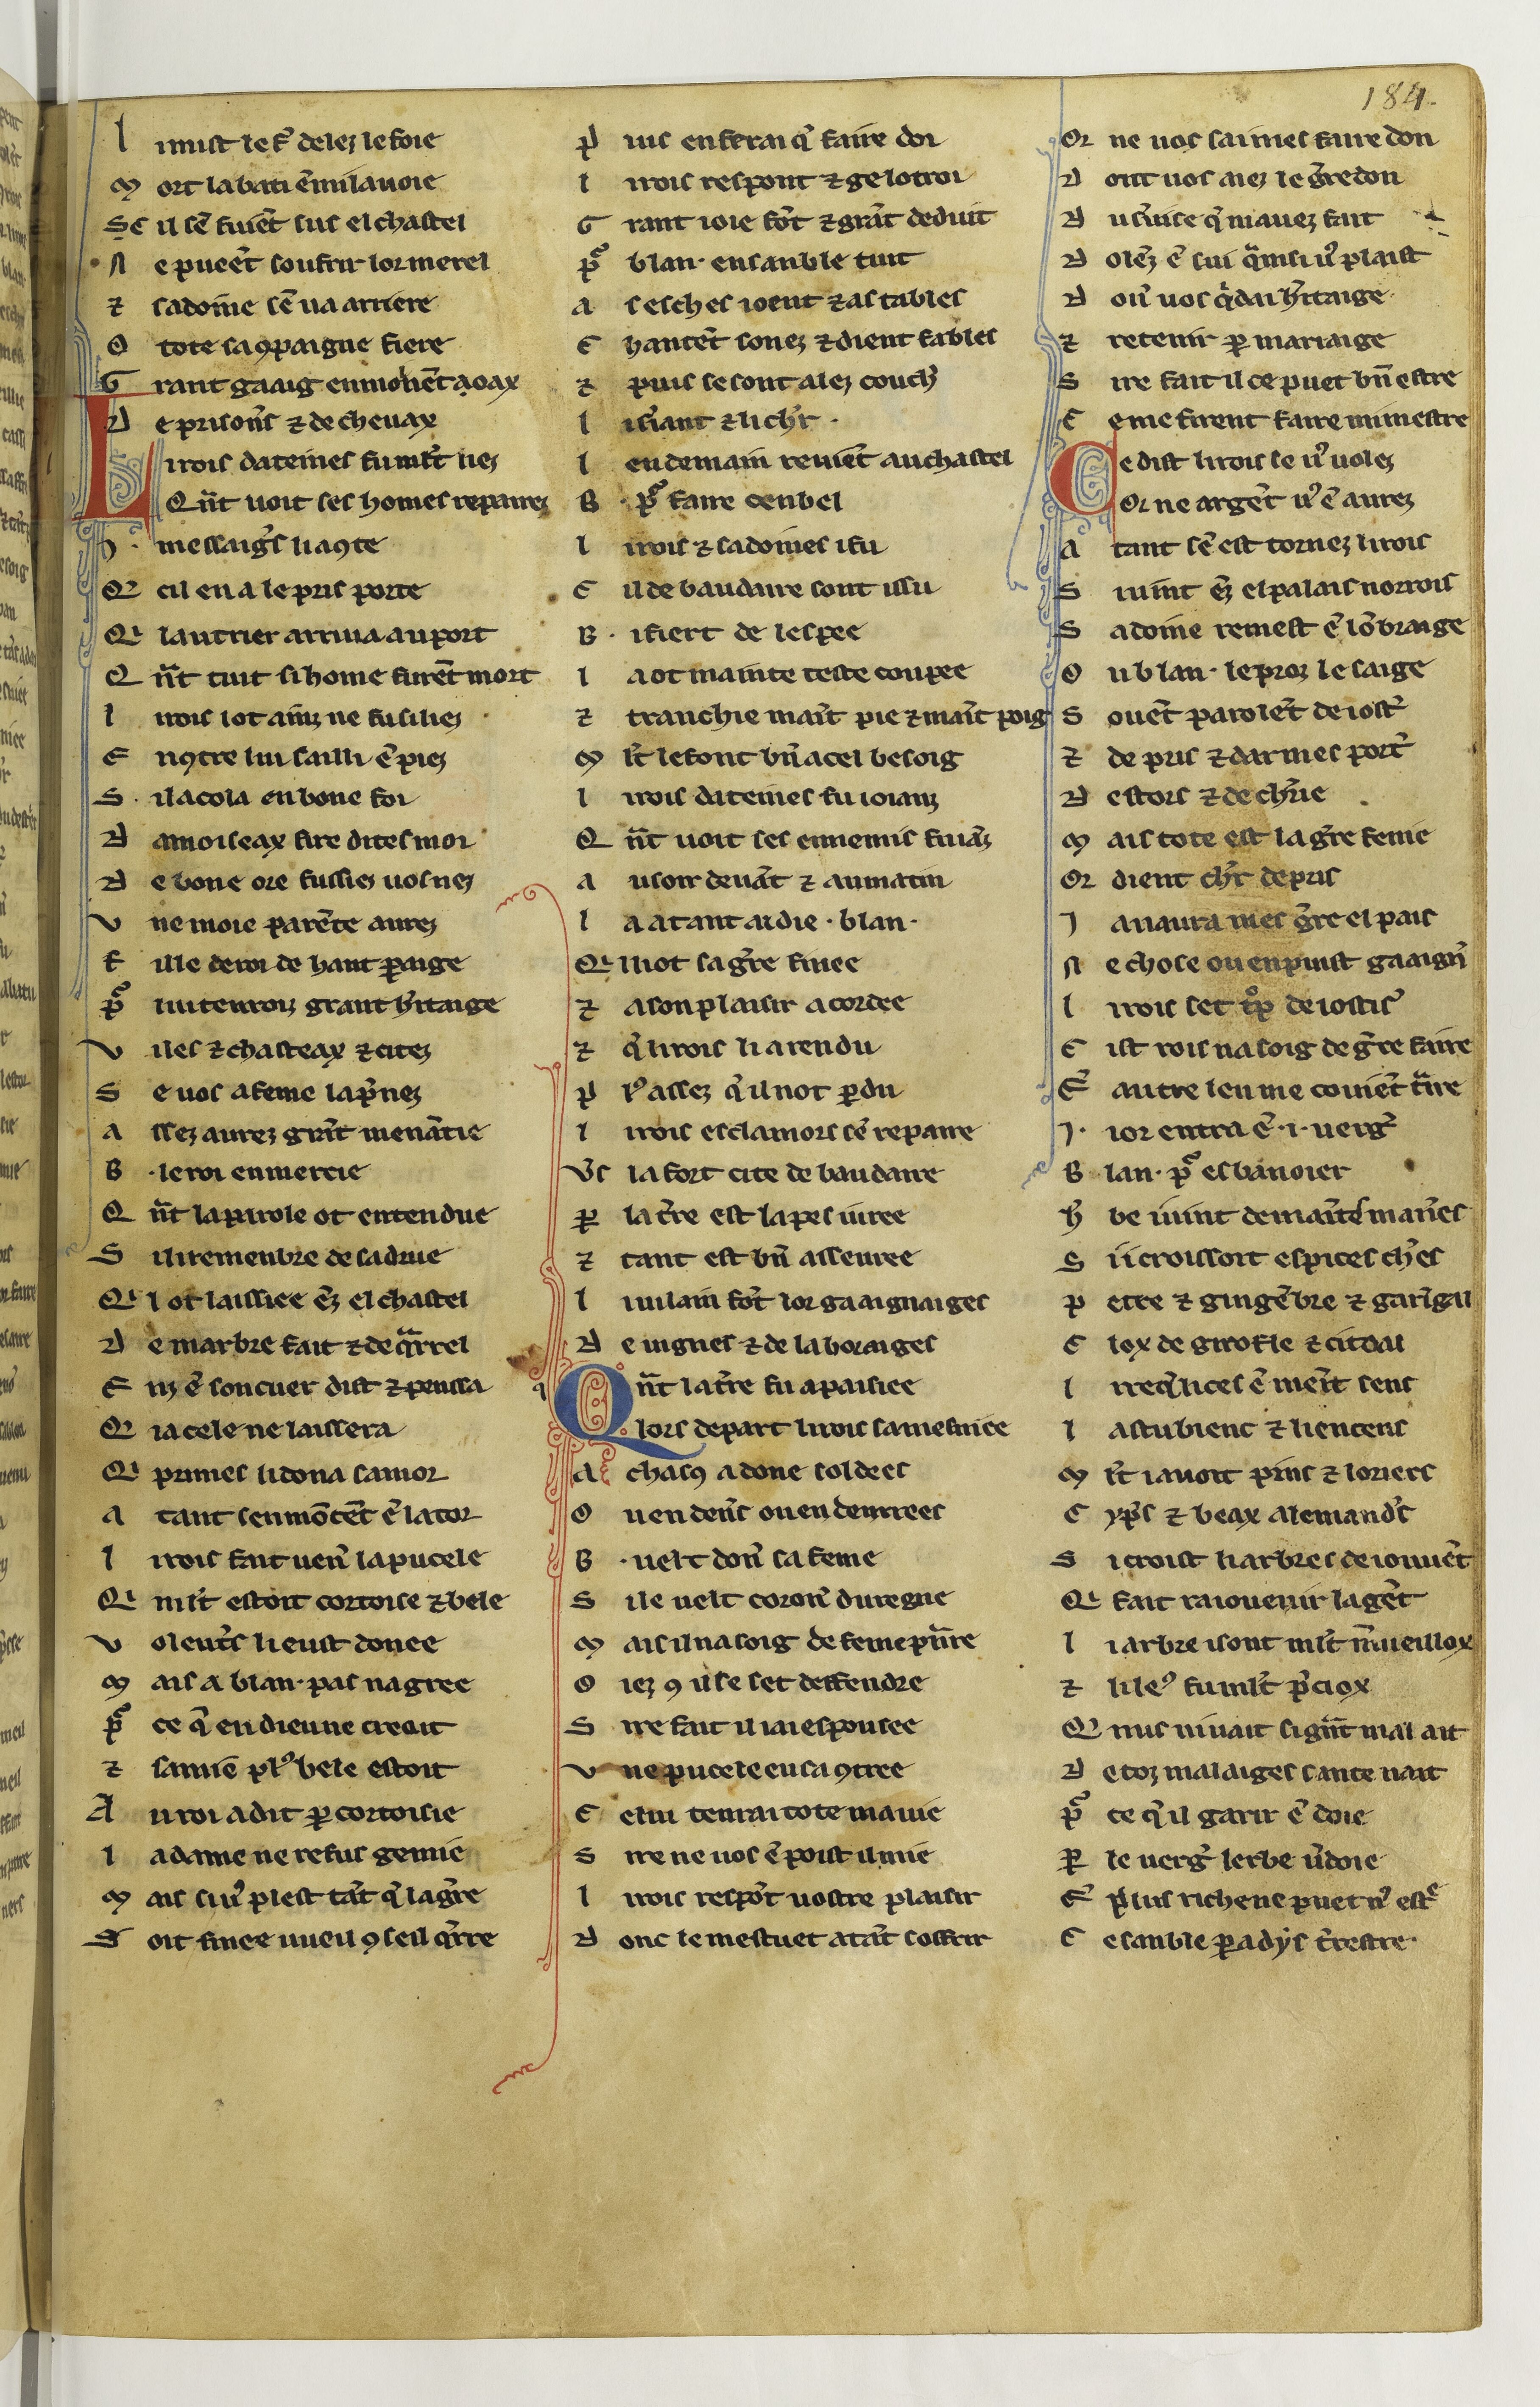 184.
L i mist le f̃ delez le foie
M ort labati ẽmi la uoie
Se il sẽ fuiẽt sus el chastel
N e pueẽt soufrir lor merel
⁊ sadoine sẽ ua arriere
O tote sa ꝯpaigne fiere
G rant gaaig enmoinẽt a ꝯax
D e prisoñs ⁊ de cheuax
L i rois dateines fu ml't liez
Qñt uoit ses homes repairez
.I. messaig̃s li a ꝯte
Q̃ cil en a le pris porte
Qi lautrier arriua au port
Q ñt tuit si home furẽt mort
L i rois lot ainz ne fu si liez
E nꝯtre lui sailli ẽ piez
S i lacola en bone foi
D amoiseax sire dites moi
D e bone ore fussiez uos nez
V ne moie parẽte aurez
F ille de roi de haut ꝑaige
P̃ lui tenroiz grant h̃itaige
V iles ⁊ chasteax ⁊ citez
S e uos a feme la p̃nez
A ssez aurez grãt menãtie
B . le roi en mercie
Q ñt la parole ot entendue
S i li remenbre de sa drue
Qi l ot laissiee ẽz el chastel
D e marbre fait ⁊ de q̃rrel
E nz ẽ son cuer dist ⁊ penssa
Q̃ ia cele ne laissera
Qi primes li dona samor
A tant sen mõtẽt ẽ la tor
L i rois fait ueñ la pucele
Qi ml't estoit cortoise ⁊ bele
V olent̃s li eust donee
M ais a blan. pas nagree
P̃ ce q̃ en dieu ne creoit
⁊ samie pl'ꝰ bele estoit
A u roi a dit ꝑ cortoisie
L a dame ne refus ge mie
M ais siuꝰ plest tãt q̃ la g̃re
S oit finee uueil ꝯseil q̃rre
P uis en ferai q̃ faire doi
L i rois respont ⁊ ge lotroi
G rant ioie fõt ⁊ grãt deduit
P̃ blan. ensanble tuit
A s esches ioent ⁊ as tables
C hantẽt sonez ⁊ dient fables
⁊ puis se sont alez couch̃
L i s̃iant ⁊ li ch̃r.
L endemain reuiẽt au chastel
B . p̃ faire cenbel
L i rois ⁊ sadoines i fu
C il de baudaire sont issu
B . i fiert de lespee
L a ot mainte teste coupee
⁊ tranchie maīt pie ⁊ maīt poig
M l't le font bñ a cel besoig
L i rois dateines fu ioianz
Q ñt uoit ses ennemis fuiãz
A u soir deuãt ⁊ au matin
L a atant aidie .blan.
Qi li iot sa g̃re finee
⁊ a son plaisir acordee
⁊ q̃ li rois li a rendu
P l'ꝰ assez q̃ il not ꝑdu
L i rois esclamors sẽ repaire
Ṽs la fort cite de baudaire
P̲ la t̃re est la pes iuree
⁊ tant est bñ asseuree
L i uilain fõt lor gaaignaiges
D e uignes ⁊ de laboraiges
Q ñt la t̃re fu apaisiee
Lors depart li rois sa mesniee
A chascꝯ a done soldees
O u en deñs ou en denrees
B . uelt doñ sa feme
S i le uelt coroñ du regne
M ais il na soig de feme p̃nre
O iez ꝯ il se set deffendre
S ire fait il iai espousee
V ne pucele en sa ꝯtree
C elui tenrai tote ma uie
S ire ne uos ẽ poist il mie
L i rois respõt uostre plaisir
D onc le mestuet atãt soffrir
Or ne uos sai mes faire don
D ont uos aiez le g̃redon
D u s̃uice q̃ mauez fait
D olẽz ẽ sui q̃nt si uꝰ plaist
D oñ uos q̃dai h̃itaige.
⁊ retenir ꝑ mariaige
S ire fait il ce puet bñ estre
C e me firent faire mi mestre
C e dist li rois se uꝰ uolez
Or ne argẽt uꝰ ẽ aurez
A tant sẽ est tornez li rois
S i uint ẽz el palais norrois
S adoine remest ẽ lõbraige
O u blan. le proz le saige
S ouẽt parolẽt de iost̃
⁊ de pris ⁊ darmes port̃
D estors ⁊ de ch̃rie
M ais tote est la g̃re fenie
Or dient ch̃r de pris
I a naura mes g̃re el pais
N e chose ou en puist gaaigñ
L i rois set trop de iostis̃
C ist rois na soig de g̃re faire
E̊ autre leu me couiẽt t̃ire
.I. ior entra ẽ .i. uerg̃
B lan. p̃ esbanoier
H̃ be iuint de maītes mañes
S i i croissoit espices ch̃es
P eure ⁊ gingẽbre ⁊ garīgal
C lox de girofle ⁊ citoal
L i reqũlices ẽ meīt sens
L astubienc ⁊ li encens
M l't i auoit pins ⁊ loriers
C yp̃s ⁊ beax alemand̃s
S i croist li arbres de iouuẽt
Qi fait raiouenir la gẽt
L i arbre i sont ml't m̃ueillox
⁊ li leꝰ fu ml't p̃ciox
Q̃ nus ni uait si g̃nt mal ait
D e toz malaiges sante nait
P̃ ce q̃ il garir ẽ doie
P̲ le uerg̃ lerbe ũdoie
E̊ plus riche ne puet nꝰ est̃
C e sanble ꝑadys t̃restre.